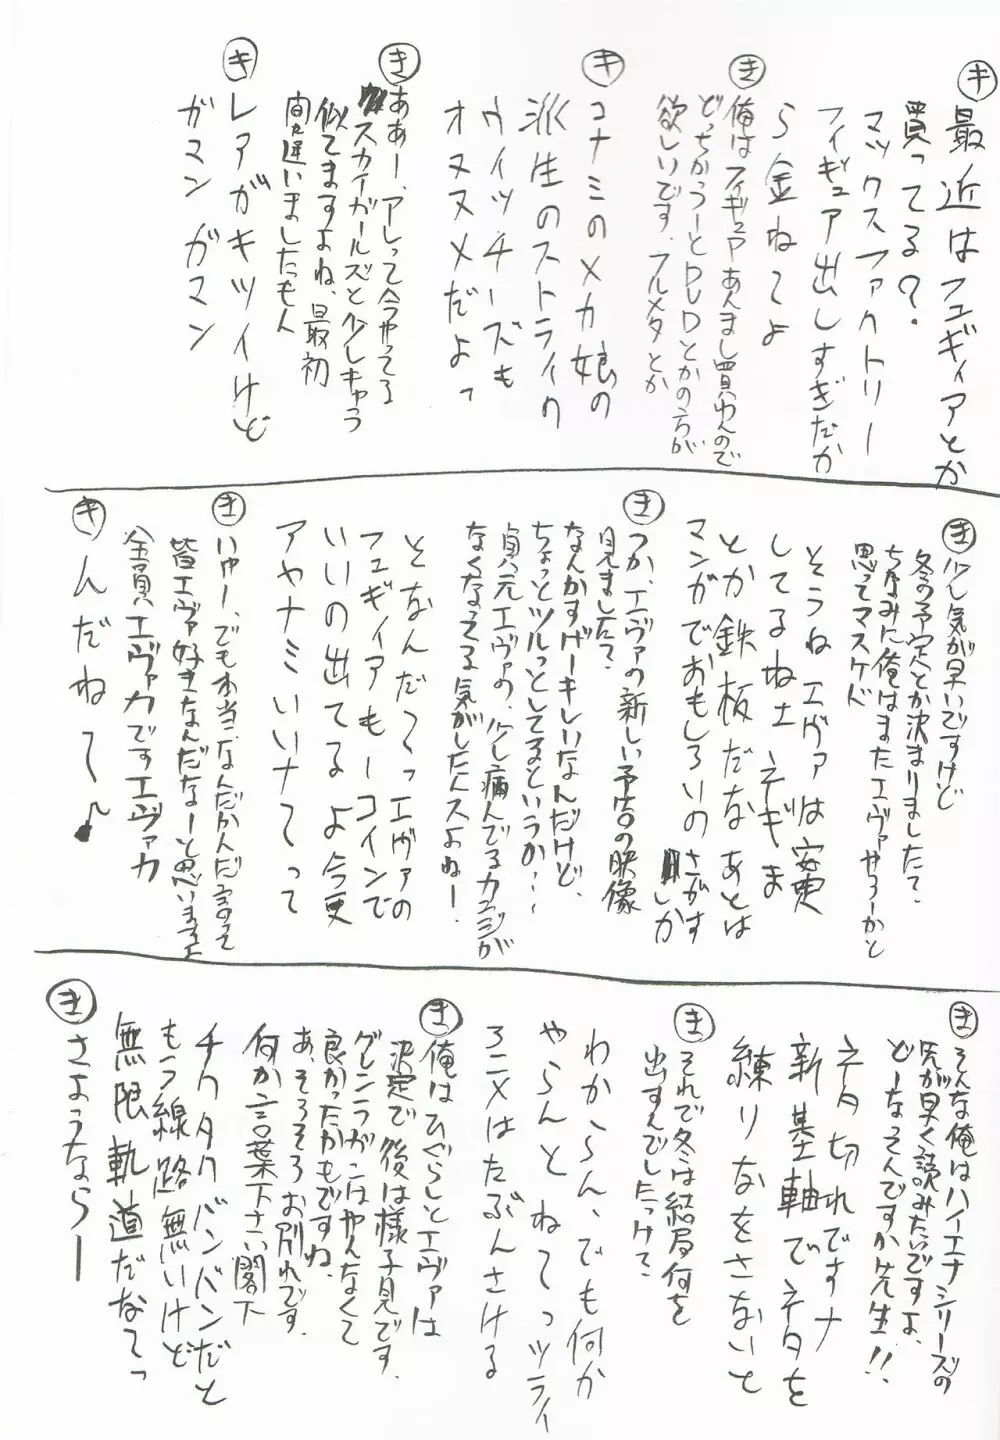 キ 最近はフュギィアとか
買ってる?
マックスファクトリー
フィギュア出しすぎだか
ら金ねてよ
き 俺はフィギュアあんまし買わんので
どっちかつーとDVDとかの方が
欲しいです、フルメタとか
キ コナミのメカ娘の
派生のストライク
ウィッチーズも
オススメだよっ
き ああー、アレって今やってる
スカイガールズと少しキャラ
似てますよね、最初
間違いましたもん
キ レアがキツイけど
ガマンガマン
き 少し気が早いですけど
冬の予定とか決まりましたて?
ちなみに俺はまたエヴァやろーかと
思ってマスケド
そうねエヴァは安定
してるね土ネギま
とか鉄板だなあとは
マンガでおもしろいのさがす
しか
き つか、エヴァの新しい予告の映像
見ましたて?
なんかすげーキレイなんだけど、
ちょっとツルっとしてるというか…
貞元エヴァの、少し病んでるカンジが
なくなってる気がしたんスよねー!
そなんだ〜っエヴァの
フュギィアもーコインで
いいの出てるよ今更
アヤナミいいナてって
き いゆー、でも本当、なんだかんだ言って
皆エヴァ好きなんだなーと思いますよ
全員エヴァカですエヴァカ
キ んだねて〜♪
き そんな俺はハイエナシリーズの
先が早く読みたいですよ、
どーなってんですか先生!!
ネタ切れですナ
新基軸でネタを
練りなをさないと
き それで冬は結局何を
出すんでしたっけて?
わから〜ん、でも何か
やらんとねてっツライ
アニメはたぶんさける
き 俺はひぐらしとエヴァは
決定で後は様子見です、
グレンラガンはやんなくて
良かったかもですね、
あ、そろそろお別れです、
何か言葉下さい閣下
チクタクバンバンだと
もう線路無いけど
無限軌道だなてっ
き さようならー